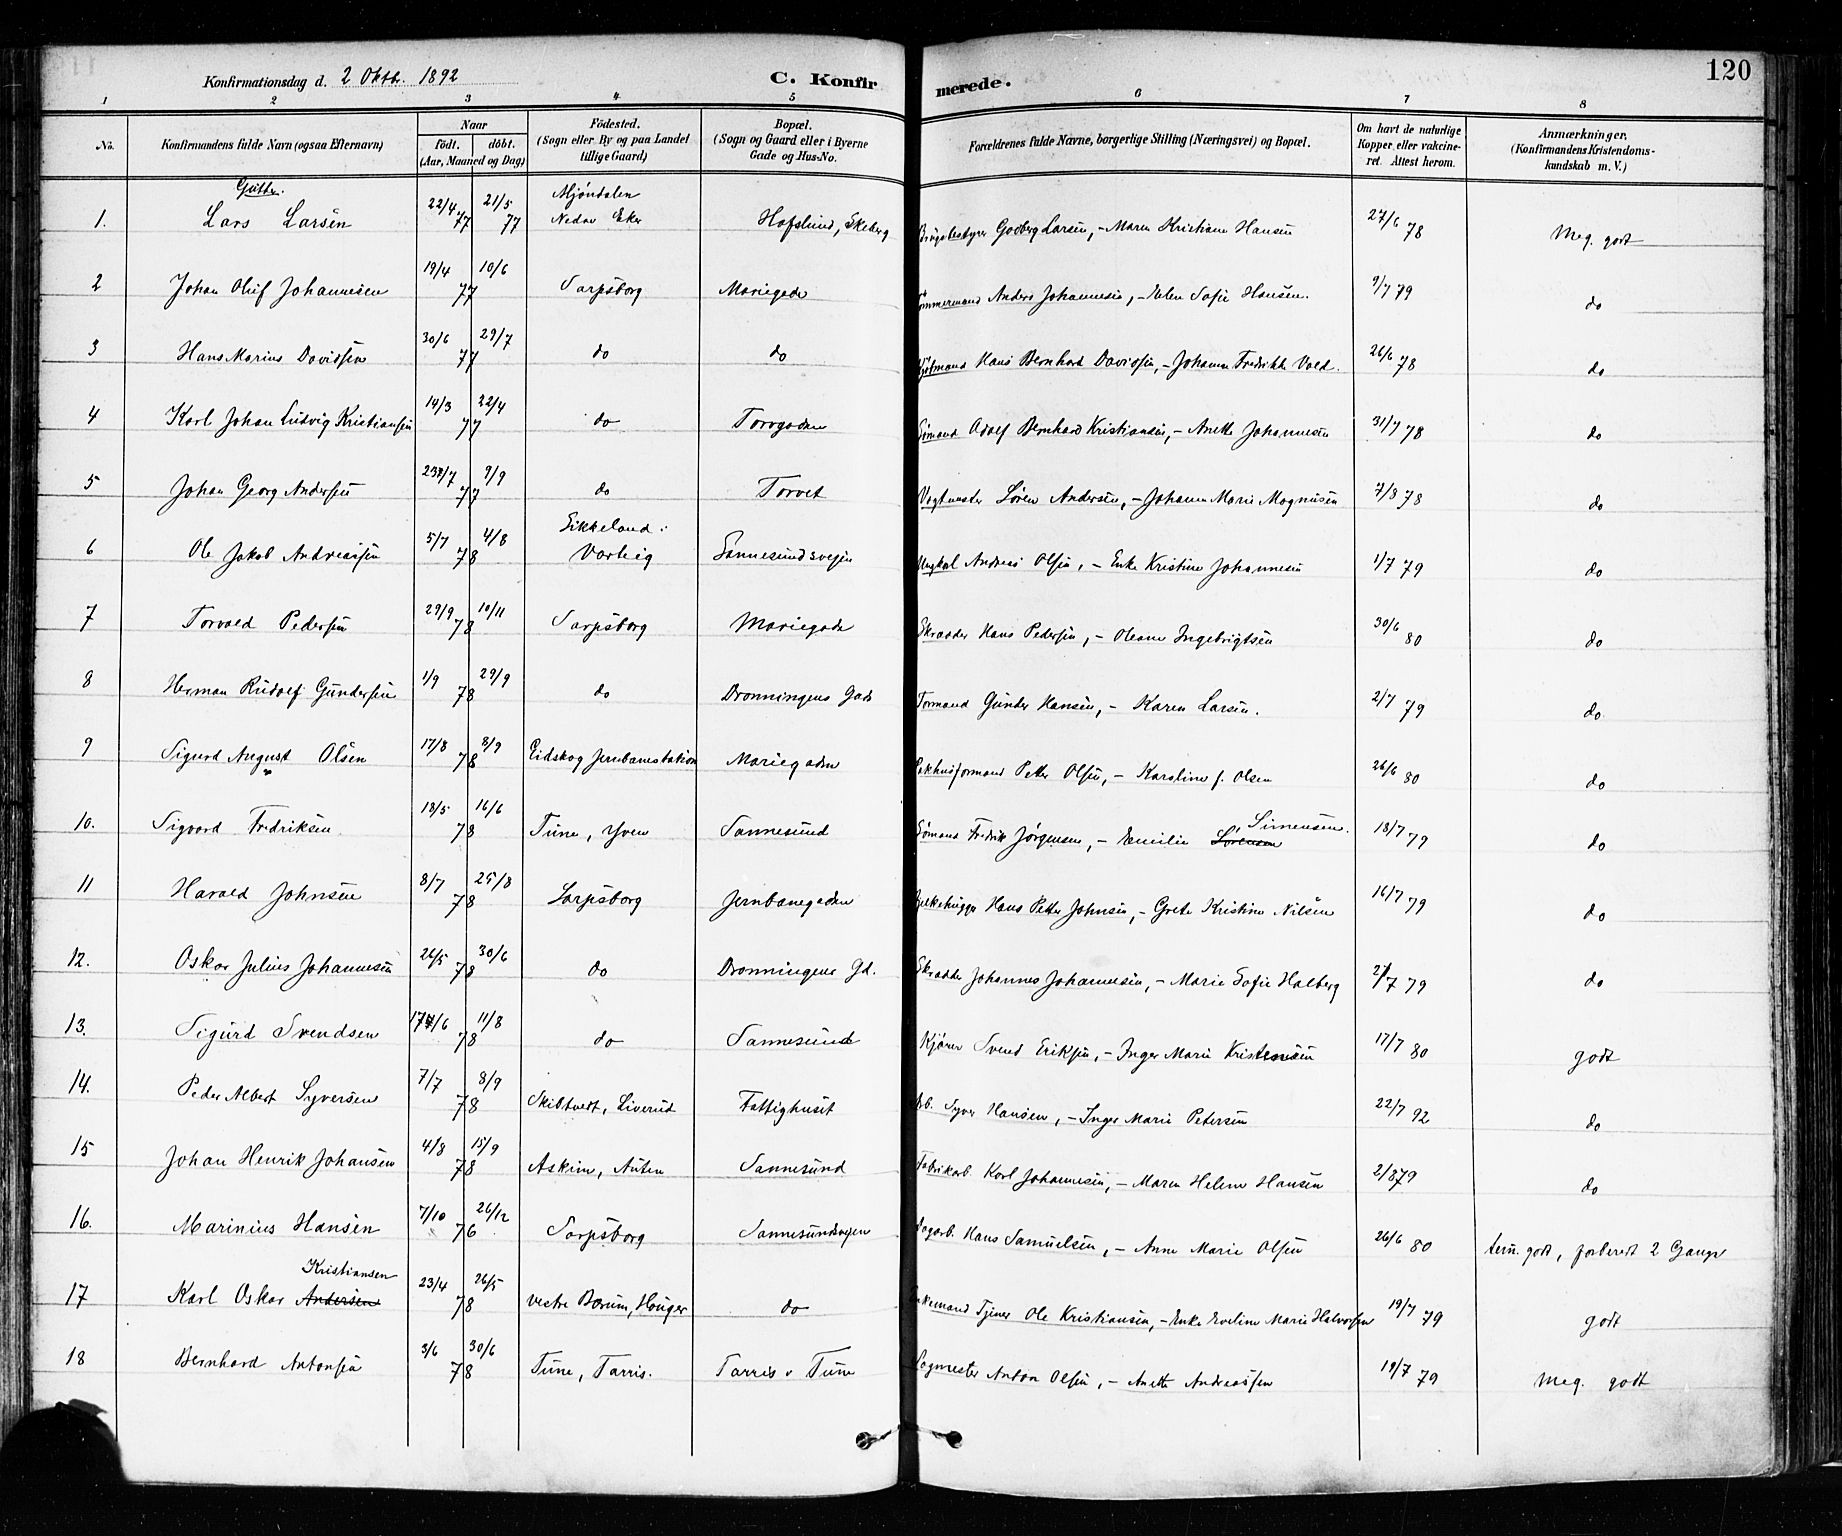 Konfirmationsdag d. 2 Oktbr. 1892 C. Konfirmerede. 120
1 2 3 4 5 6 7 8
No. Konfirmandens fulde Navn (ogsaa Efternavn) Naar Födt. döbt. (Aar, Maaned og Dag) Födested. (Sogn eller By og paa Landet tillige Gaard) Bopæl. (Sogn og Gaard eller i Byerne Gade og Hus-No. Forældrenes fulde Navne, borgerlige Stilling (Næringsvei) og Bopæl. Om havt de naturlige Kopper eller vakcineret. Attest herom. Anmærkninger. (Konfirmandens Kristendomskundskab m. V.)
Gutter.
1. Lars Larsen 22/4 77 21/5 77 Mjöndalen Nedre Eker Hafslund, Skeberg Brugsbestyrer Godberg Larsen, - Maren Kristiane Hansen 27/6 78 Meg. godt
2 Johan Oluf Johannesen 19/4 77 10/6 Sarpsborg Mariegade Tømmermand Anders Johannesen, - Helen Sofie Hansen. 9/7 79 do
3 Hans Marius Davidsen 30/6 77 29/7 do do Hans Bernhard Davidsen, - Johanne Fredrikke Vold. 26/6 78 do
4 Karl Johan Ludvig Kristiansen 14/3 77 22/4 do Torvgaden Sömand Adolf Bernhard Kristiansen, - Anette Johannesen 31/7 78 do
5 Johan Georg Andersen 77 9/9 do Torvet Vogtmester Sören Andersen, - Johanne Marie Magnusen 7/8 78 do
6 Ole Jakob Andreassen 5/7 78 4/8 Eikkeland: Varteig Sannesundsvejen Ungkarl Andreas Olsen, - Enke Kristine Johannesen 1/7 79 do
7 Torvald Pedersen 29/9 78 10/11 Sarpsborg Mariegade Skrædder Hans Pedersen, - Oleane Ingebrigtsen 30/6 80 do
8 Herman Rudolf Gundersen 1/9 78 29/9 do Dronningens Gade Formand Gunder Hansen, - Karen Larsen. 2/7 79 do
9 Sigurd August Olsen 17/8 78 8/9 Eidskog Jernbanestation Mariegaden Pakhusformand Petter Olsen, - Karoline f. Olsen 26/6 80 do
10. Sigvard Fredriksen 18/5 78 16/6 Tune, Yven Sannesund Sömand Fredrik Jørgensen, - Emilie Sørensen Simensen. 18/7 79 do
11 Harald Johnsen 8/7 78 25/8 Sarpsborg Jernbanegaden Bjelkehugger Hans Petter Johnsen, - Grete Kristine Nilsen 16/7 79 do
12. Oskar Julius Johannesen 26/5 78 30/6 do Dronningens Gd. Skrædder Johannes Johannesen, - Marie Sofie Halberg 2/7 79 do
13. Sigurd Svendsen 78 11/8 do Sannesund Kjører Svend Eriksen, - Inger Marie Kristensen 17/7 80 godt
14. Peder Albert Syversen 7/7 78 8/9 Skibtvedt, Liverud Fattighuset Arb. Syver Hansen, - Inger Marie Petersen 22/7 92 do
15 Johan Henrik Johansen 4/8 78 15/9 Askim, Auten Sannesund Fabrikarb. Karl Johannesen, - Maren Helene Hansen 2/8 79 do
16. Marinius Hansen 7/10 76 26/12 Sarpsborg Sannesundsvejen Dagarb. Hans Samuelsen, - Anne Marie Olsen 26/6 80 tem. godt, forberedt 2 Gange
17 Karl Oskar Andersen Kristiansen 23/4 78 26/5 vestre Bærum, Hauger do Enkemand Tjener Ole Kristiansen, - Enke Eveline Marie Halvorsen 19/7 79 godt
18 Bernhard Antonsen 3/6 78 30/6 Tune, Tarris. Tarris i Tune Sagmester Anton Olsen, - Anette Andreassen 19/7 79 meg. godt